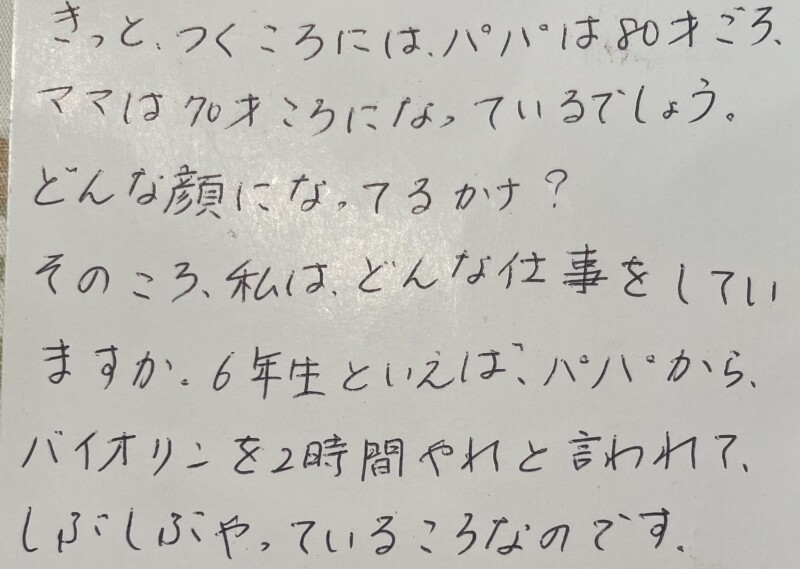 きっと、つくころには、パパは80才ごろ、
ママは70才ころになっているでしょう。
どんな顔になってるかナ?
そのころ、私は、どんな仕事をしてい
ますか。6年生といえば、パパから、
バイオリンを2時間やれと言われて、
しぶしぶやっているころなのです。